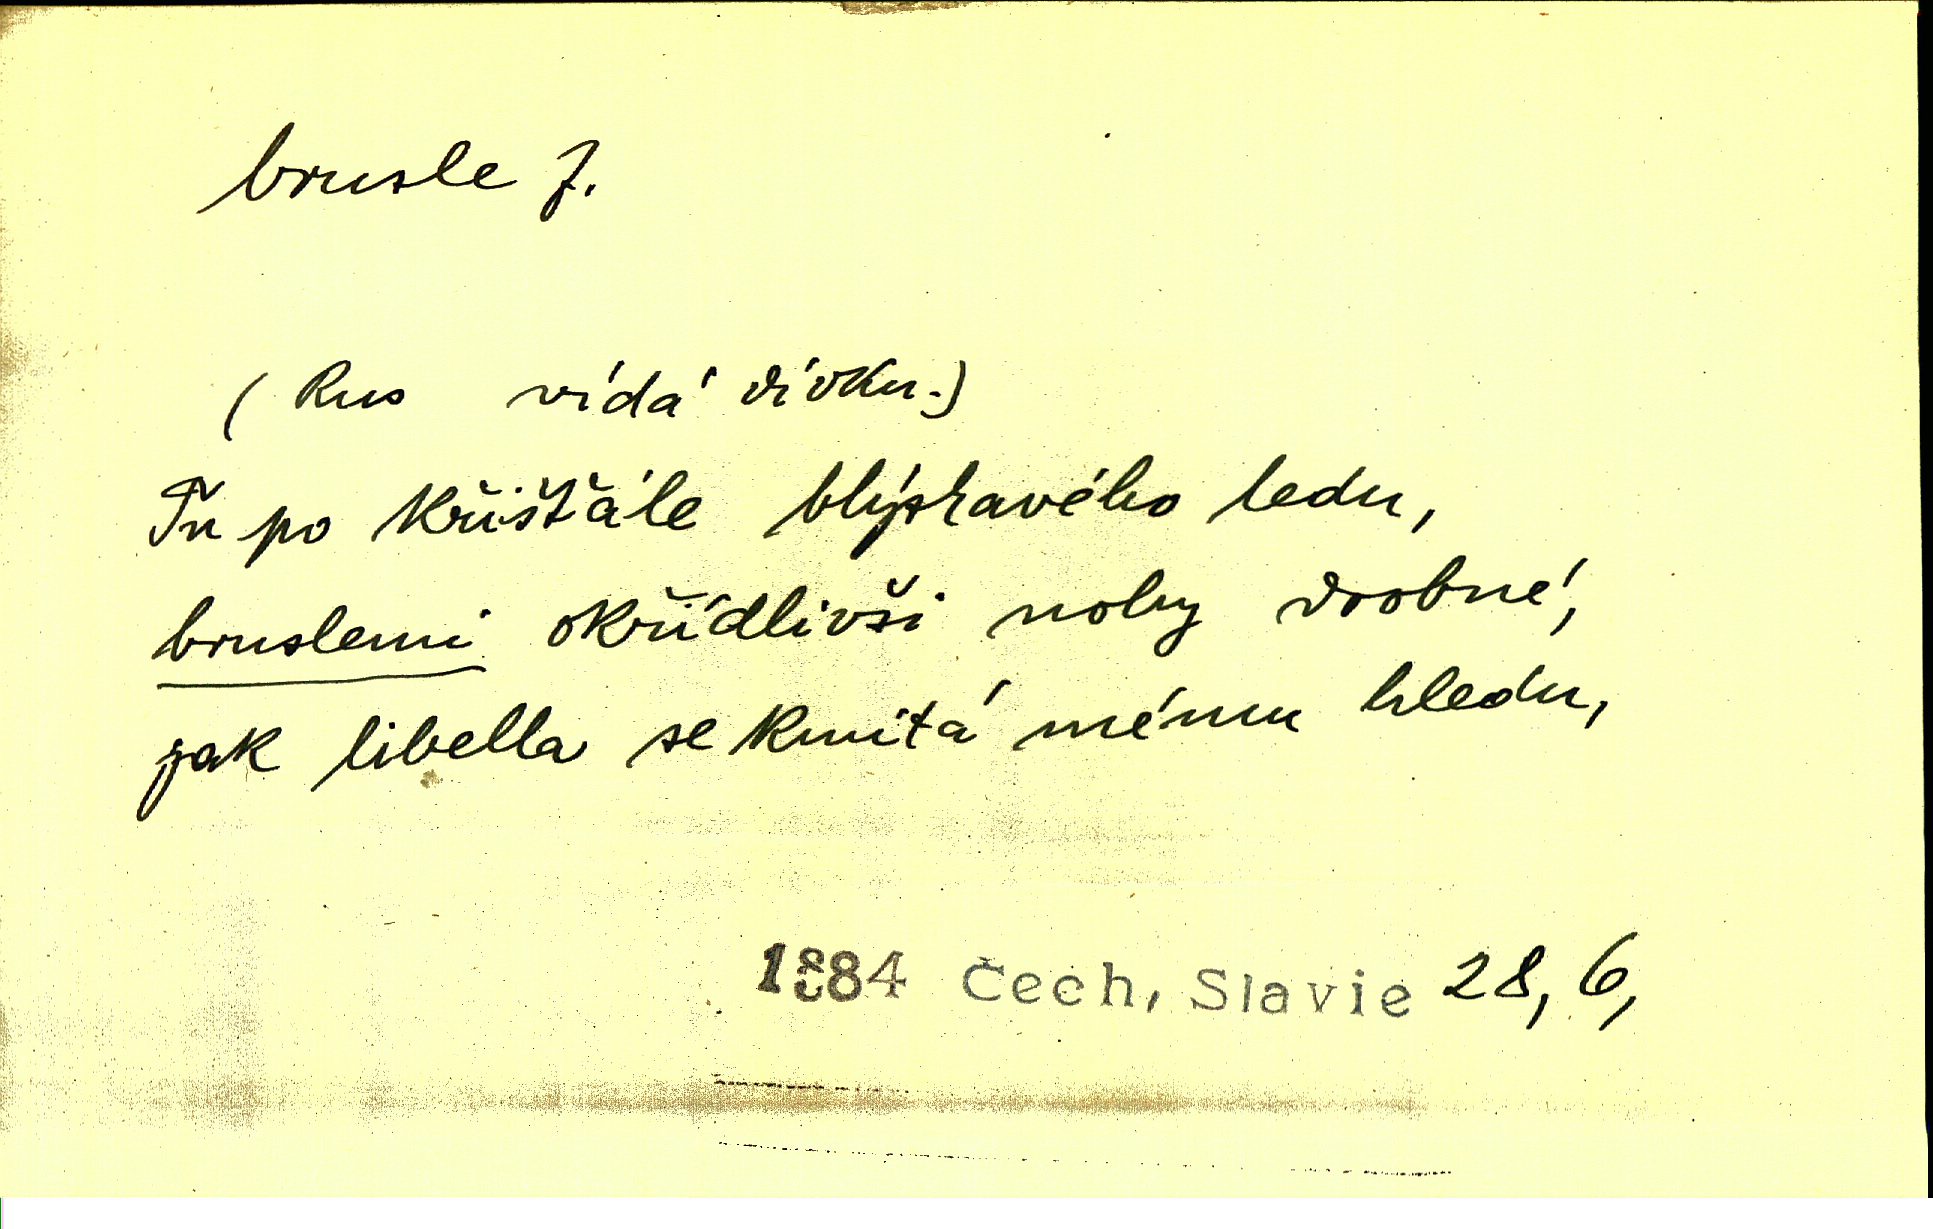 brusle f.
(Rus vídá dívku.)
Tu po křišťále blýskavého ledu,
bruslemi okřídlivši nohy drobné,
jak libella se kmitá mému hledu,
1884 Čech, Slavie 28, 6,